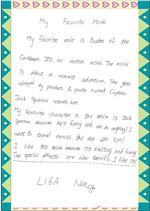 My Favorite Movie
My favorite movie is Pirates of the
Caribbean. It's an action movie. The movie
is about a woman's adventure. She gets
by pirates. A pirate named Captain
Jack Sparrow saves her.
My favorite character in the movie is Jack
Sparrow because he's funny and can do anything! I
want to travel across the sea with him!
I like this movie because it's exciting and funny.
The special effects are also terrific. I like it!
Nancy